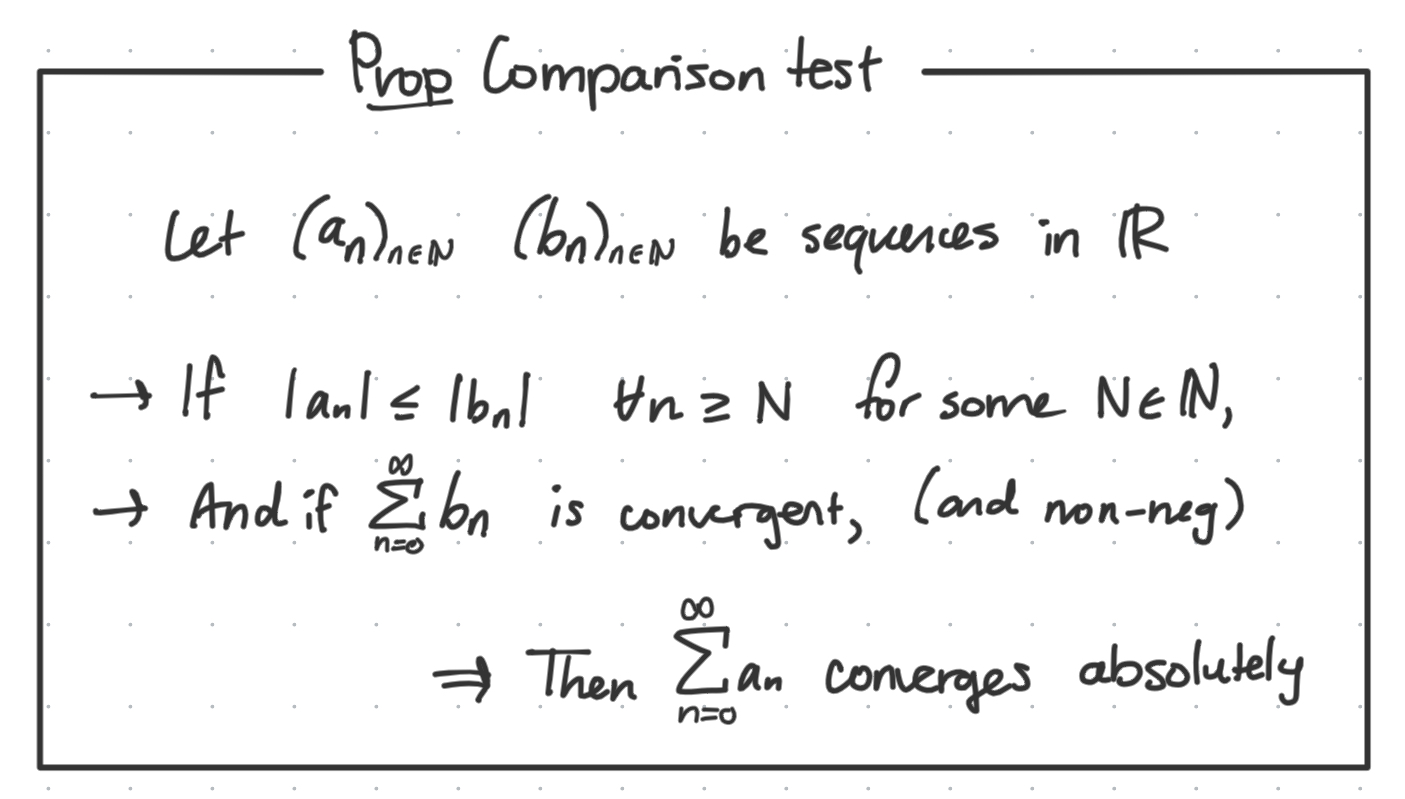 Prop Comparison test
Let (aₙ)ₙ∈ℕ (bₙ)ₙ∈ℕ be sequences in ℝ
→ If |aₙ| ≤ |bₙ| ∀n ≥ N for some N ∈ ℕ,
→ And if ∑_{n=0}^{∞} bₙ is convergent, (and non-neg)
⇒ Then ∑_{n=0}^{∞} aₙ converges absolutely